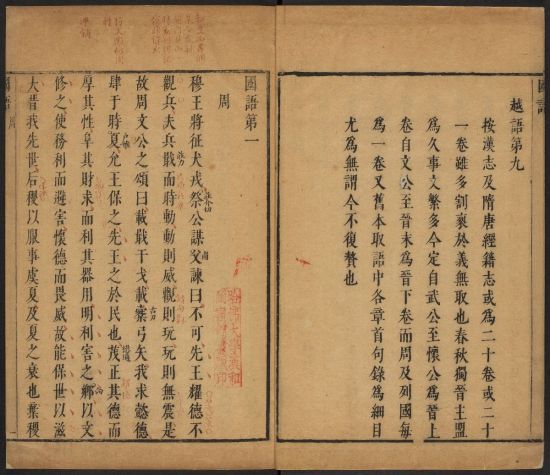 越語第九
按漢志及隋唐經籍志或爲二十卷或二十
一卷雖多割裂於義無取也春秋獨晉主盟
爲久事文繁多今定自武公至懷公爲晉上
卷自文公至晉末爲晉下卷而周及列國每
爲一卷又舊本取語中各章首句錄爲細目
尤爲無謂今不復贅也
國語第一
周
穆王將征犬戎祭公謀父諫曰不可先王耀德不
觀兵夫兵戢而時動動則威觀則玩玩則無震是
故周文公之頌曰載戢干戈載櫜弓矢我求懿德
肆于時夏允王保之先王之於民也茂正其德而
厚其性阜其財求而利其器用明利害之鄉以文
修之使務利而避害懷德而畏威故能保世以滋
大昔我先世后稷以服事虞夏及夏之衰也棄稷
國語
周